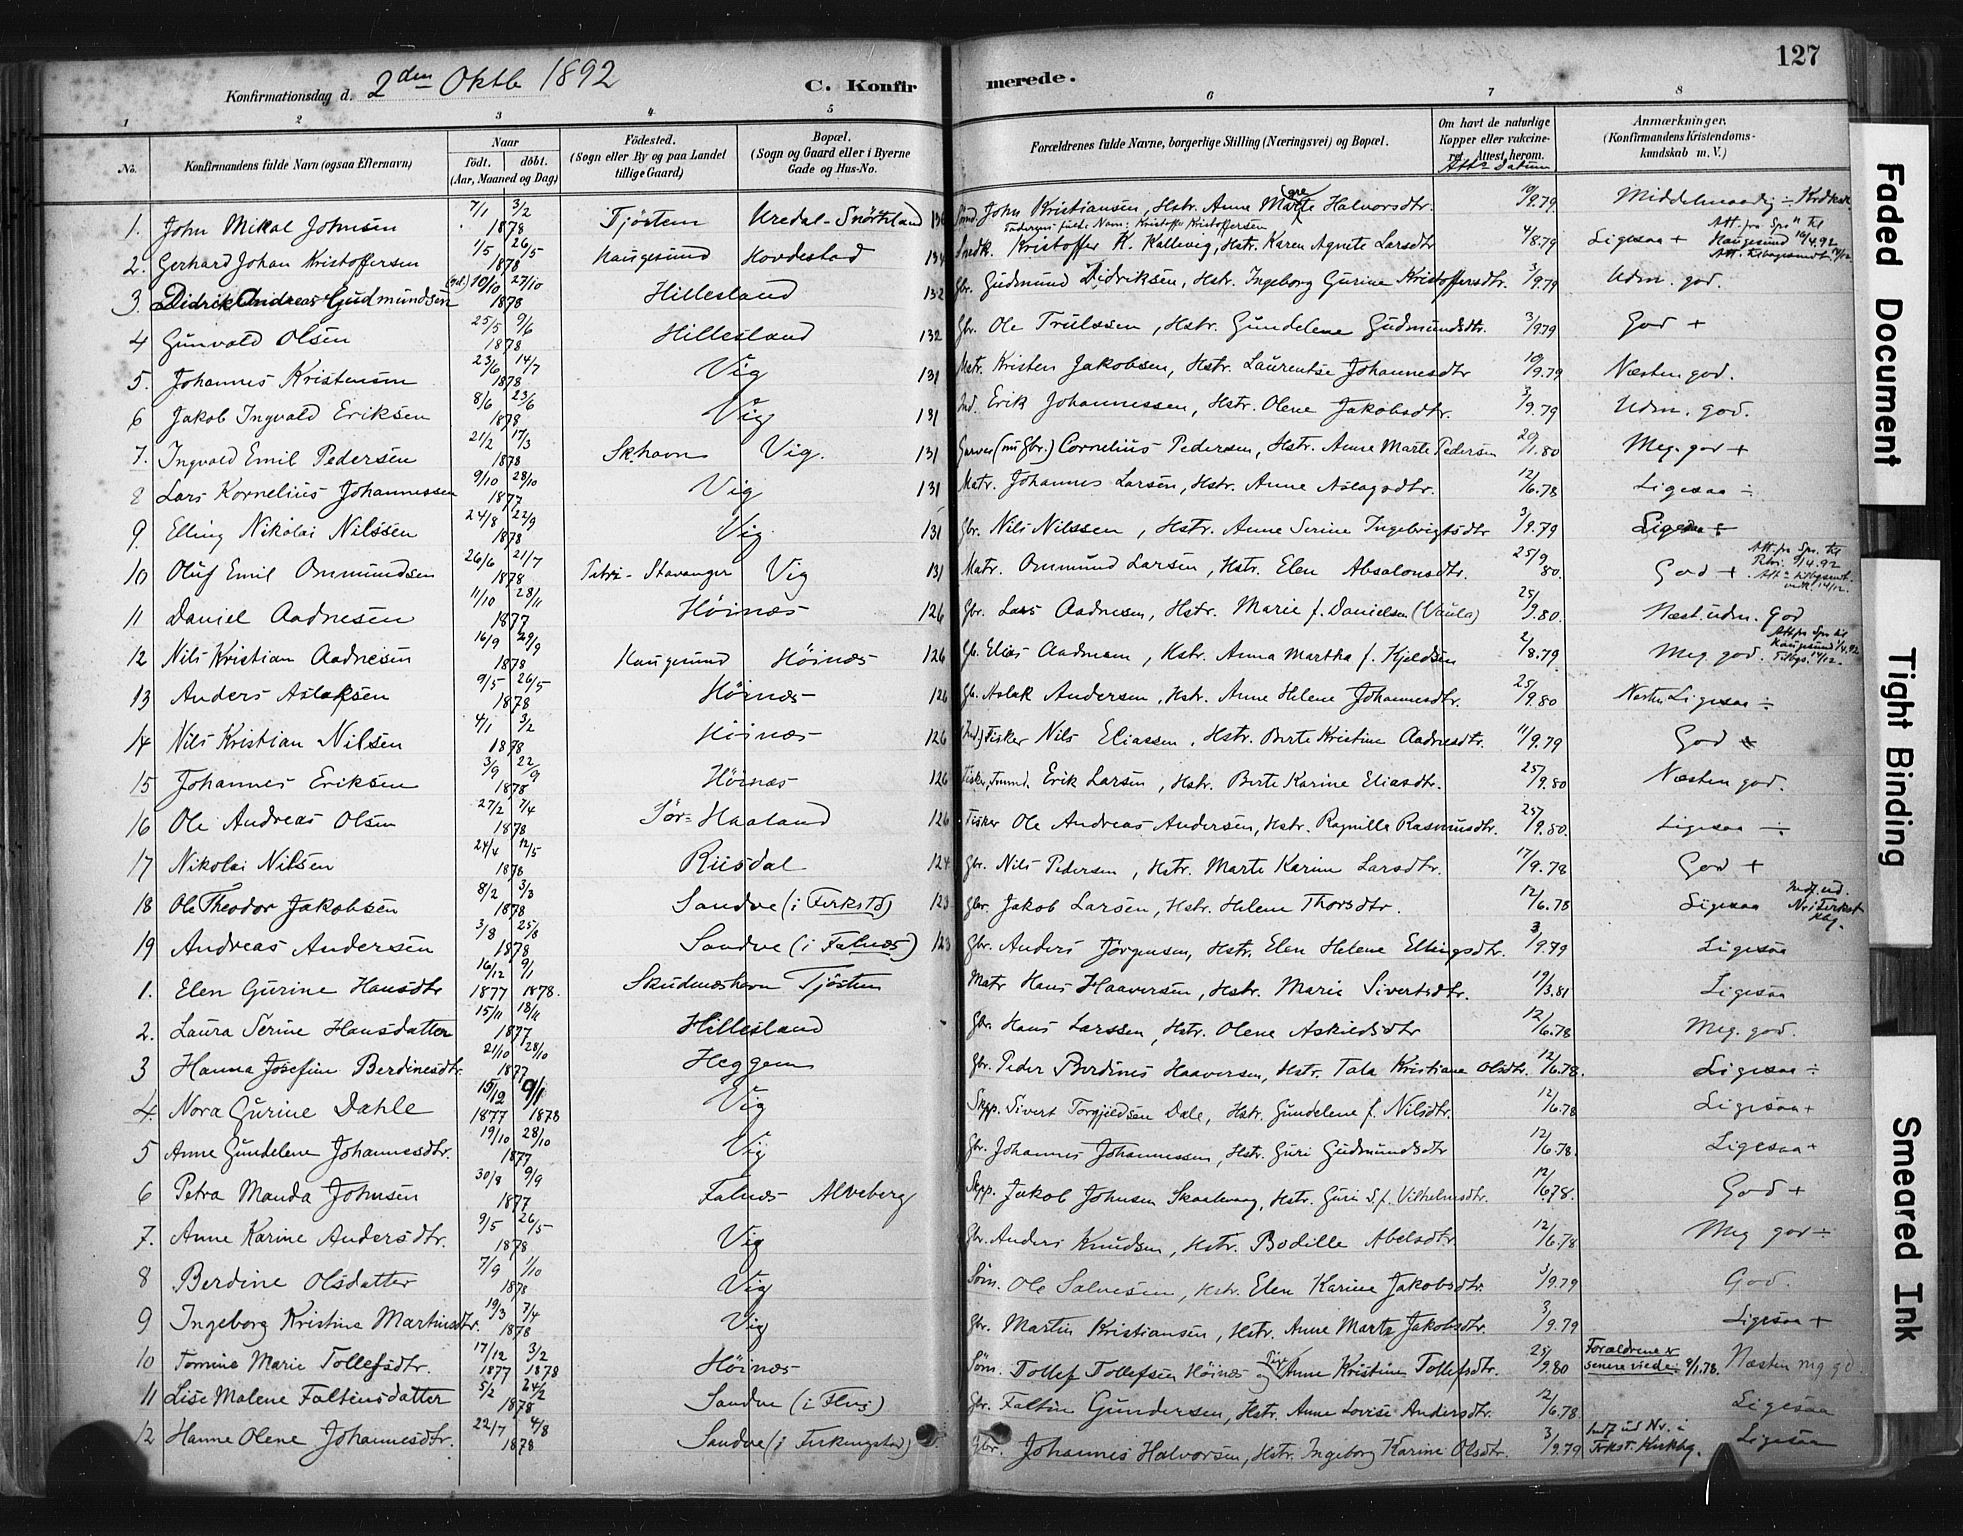 127
Konfirmationsdag d. 2den Oktb 1892 C. Konfirmerede.
1 2 3 4 5 6 7 8
No. Konfirmandens fulde Navn (ogsaa Efternavn) Naar født. døbt. (Aar, Maaned og Dag) Fødested. (Sogn eller By og paa Landet tillige Gaard) Bopæl. (Sogn og Gaard eller i Byerne Gade og Hus-No. Forældrenes fulde Navne, borgerlige Stilling (Næringsvei) og Bopæl. Om havt de naturlige Kopper eller vakcineret. Attest herom. Att: Datum Anmærkninger. (Konfirmandens Kristendomskundskab m. V.)
1. John Mikal Johnsen 7/1 3/2 1878 Tjösten Uredal-Snörteland John Kristiansen, Hstr. Anne Margrete Halvorsdtr. 10/9.79 Middelmaadig ÷
Faderens fulde Navn: Kristoffer Kristoffersen
2. Gerhard Johan Kristoffersen 1/5 26/5 1878 Haugesund Hovdestad 134 Snedk. Kristoffer K. Kallevig, Hstr. Karen Agnete Larsdtr 4/8.79 Ligesaa + Att. fra Spr til Haugesund 10/4.92
3. Didrik Andreas Gudmundsen 10/10 27/10 1878 Hillesland 132 Gbr. Gudmund Didriksen, Hstr. Ingeborg Gurine Kristoffersdtr. 3/9.79 Udm. god.
4 Gunvald Olsen 25/5 9/6 1878 Hillesland 132 Gbr. Ole Trulssen, Hstr. Gundelene Gudmundsdtr. 3/979 God +
5. Johannes Kristensen 23/6 14/7 1878 Vig 131 Matr. Kristen Jakobsen, Hstr. Laurentse Johannesdtr 10/9.79 Næsten god.
6 Jakob Ingvald Eriksen 8/6 23/6 1878 Vig 131 Ind. Erik Johannessen, Hstr. Olene Jakobsdtr. 3/9.79 Udm. god.
7. Ingvald Emil Pedersen 21/2 17/3 1878 Sk.havn Vig. 131 Garver (nu Gbr.) Cornelius Pedersen, Hstr. Anne Marte Pedersen 20/1.80 Meg. god +
8 Lars Kornelius Johannessen 9/10 28/10 1877 Vig 131 Matr. Johannes Larsen, Hstr. Anne Aslagsdtr. 12/6.78 Ligesaa ÷
9. Elling Nikolai Nilssen 24/8 22/9 1878 Vig 131 Gbr. Nils Nilssen, Hstr. Anne Serine Ingebrigtsdtr 3/9.79 Ligesaa ÷
10 Oluf Emil Ommundsen 26/6 21/7 1878 Petri-Stavanger Vig 131 Matr. Ommund Larsen, Hstr. Elen Absalonsdtr. 25/9 80. God + Att. fra Spr. til Petri. 9/4.92
11 Daniel Aadnesen 11/10 28/11 1877 Höinæs 126 Gbr. Lars Aadnesen, Hstr. Marie f. Danielsen (Vaula) 25/9.80. Næst. udm. God
12 Nils Kristian Aadnesen 16/9 29/9 1878 Haugesund Höinæs 126 Gb. Elias Aadnesen, Hstr. Anna Martha f. Kjeldsen 2/8.79 Meg god. Att fra Spr til Haugesund 1/4.92
13 Anders Aslaksen 9/5 26/5 1878 Höinæs 126 Gb. Aslak Andersen, Hstr. Anne Helene Johannesdtr. 25/9.80 Næsten Ligesaa ÷
14 Nils Kristian Nilsen 4/1 3/2 1878 Höinæs 126 Ind) Fisker Nils Eliassen, Hstr. Berte Kristine Aadnesdtr. 11/9.79 God
15 Johannes Eriksen 3/9 22/9 1878 Höinæs 126 Fisker, Erik Larsen, Hstr. Berte Karine Eliasdtr. 25/9.80 Næsten god.
16 Ole Andreas Olsen 27/2 7/4 1878 Sör-Haaland 126 Fisker Ole Andreas Andersen, Hstr. Ragnilla Rasmusdtr. 25/9.80. Ligesaa ÷
17 Nikolai Nilsen 24/4 12/5 1878 Riisdal 124 Gbr. Nils Pedersen, Hstr. Marte Karine Larsdtr. 17/9.78 God +
18 Ole Theodor Jakobsen 8/2 3/3 1878 Sandve (i Ferkstd) 123 Gbr. Jakob Larsen, Hstr. Helene Thorsdtr. 12/6.78 Ligesaa Indf. ud. Nr i Ferkst. Kbg.
19 Andreas Andersen 3/8 25/8 1878 Sandve (i Falnæs) 123 Gbr. Anders Jörgensen, Hstr. Elen Helene Ellingsdtr. 3/9.79 Ligesaa
1. Elen Gurine Hansdtr 16/12 9/1 1877 1878. Skudesneshavn Tjösten Matr Hans Haaversen, Hstr. Marie Sivertsdtr. 19/3.81 Ligesaa
2. Laura Serine Hansdatter 15/11 18/11 1877 Hillesland Gbr. Hans Larssen, Hstr. Olene Askildsdtr 12/6.78 Meg. god.
3 Hanna Josefine Berdinesdtr. 21/10 28/10 1877 Heggem Gbr. Peder Berdines Haaversen, Hstr. Tala Kristiane Olsdtr. 12/6.78. Ligesaa ÷
4. Nora Gurine Dahle 15/12 9/1 1877 1878 Vig Skpp. Sivert Torgjeldsen Dale, Hstr. Gundelene f. Nilsdtr. 12/6.78 Ligesaa +
5 Anne Gundelene Johannesdtr. 19/10 28/10 1877 Vig Gbr. Johannes Johannessen, Hstr. Guri Gudmundsdtr 12/6.78. Ligesaa +
6 Petra Manda Johnsen 30/8 9/9 1877 Falnæs Alveberg Skpp. Jakob Johnsen, Hstr. Guri S. f. Vilhelmsdtr. 12/678. God +
7. Anne Karine Andersdtr. 9/5 26/5 1878 Vig Gbr. Anders Knudsen, Hstr. Bodille Abelsdtr 12/6.78 Meg god ÷
8 Berdine Olsdatter 7/9 1/10 1878 Vig Söm. Ole Salvesen, Hstr. Elen Karine Jakobsdtr. 3/9.79 God
9 Ingeborg Kristine Martinsdtr. 19/3 7/4 1878 Vig Gbr. Martin Kristiansen, Hstr. Anne Marta Jakobsdtr. 3/9.79 Ligesaa +
10 Tomine Marie Tollefsdtr. 17/12 3/2 1877 1878 Höinæs Söm. Tollef Tollefsen Höinæs og Pige Anne Kristine Tollefsdtr. 25/9.80 Forældrene senere viede 9/1.78. Næsten mg gd
11 Lise Malene Faltinsdatter 5/2 24/2 1878 Sandve (i Flns) Gbr. Faltin Gundersen, Hstr. Anne Lovise Andersdtr. 12/6.78. Ligesaa
12 Hanne Olene Johannesdtr. 22/7 4/8 1878 Sandve (i Ferkingstad) Gbr. Johannes Halvorsen, Hstr. Ingeborg Karine Olsdtr. 3/9.79 Indf ud Nr. i Frkst. Kirkbg. Ligesaa
Faded Document
Tight Binding
Smeared Ink